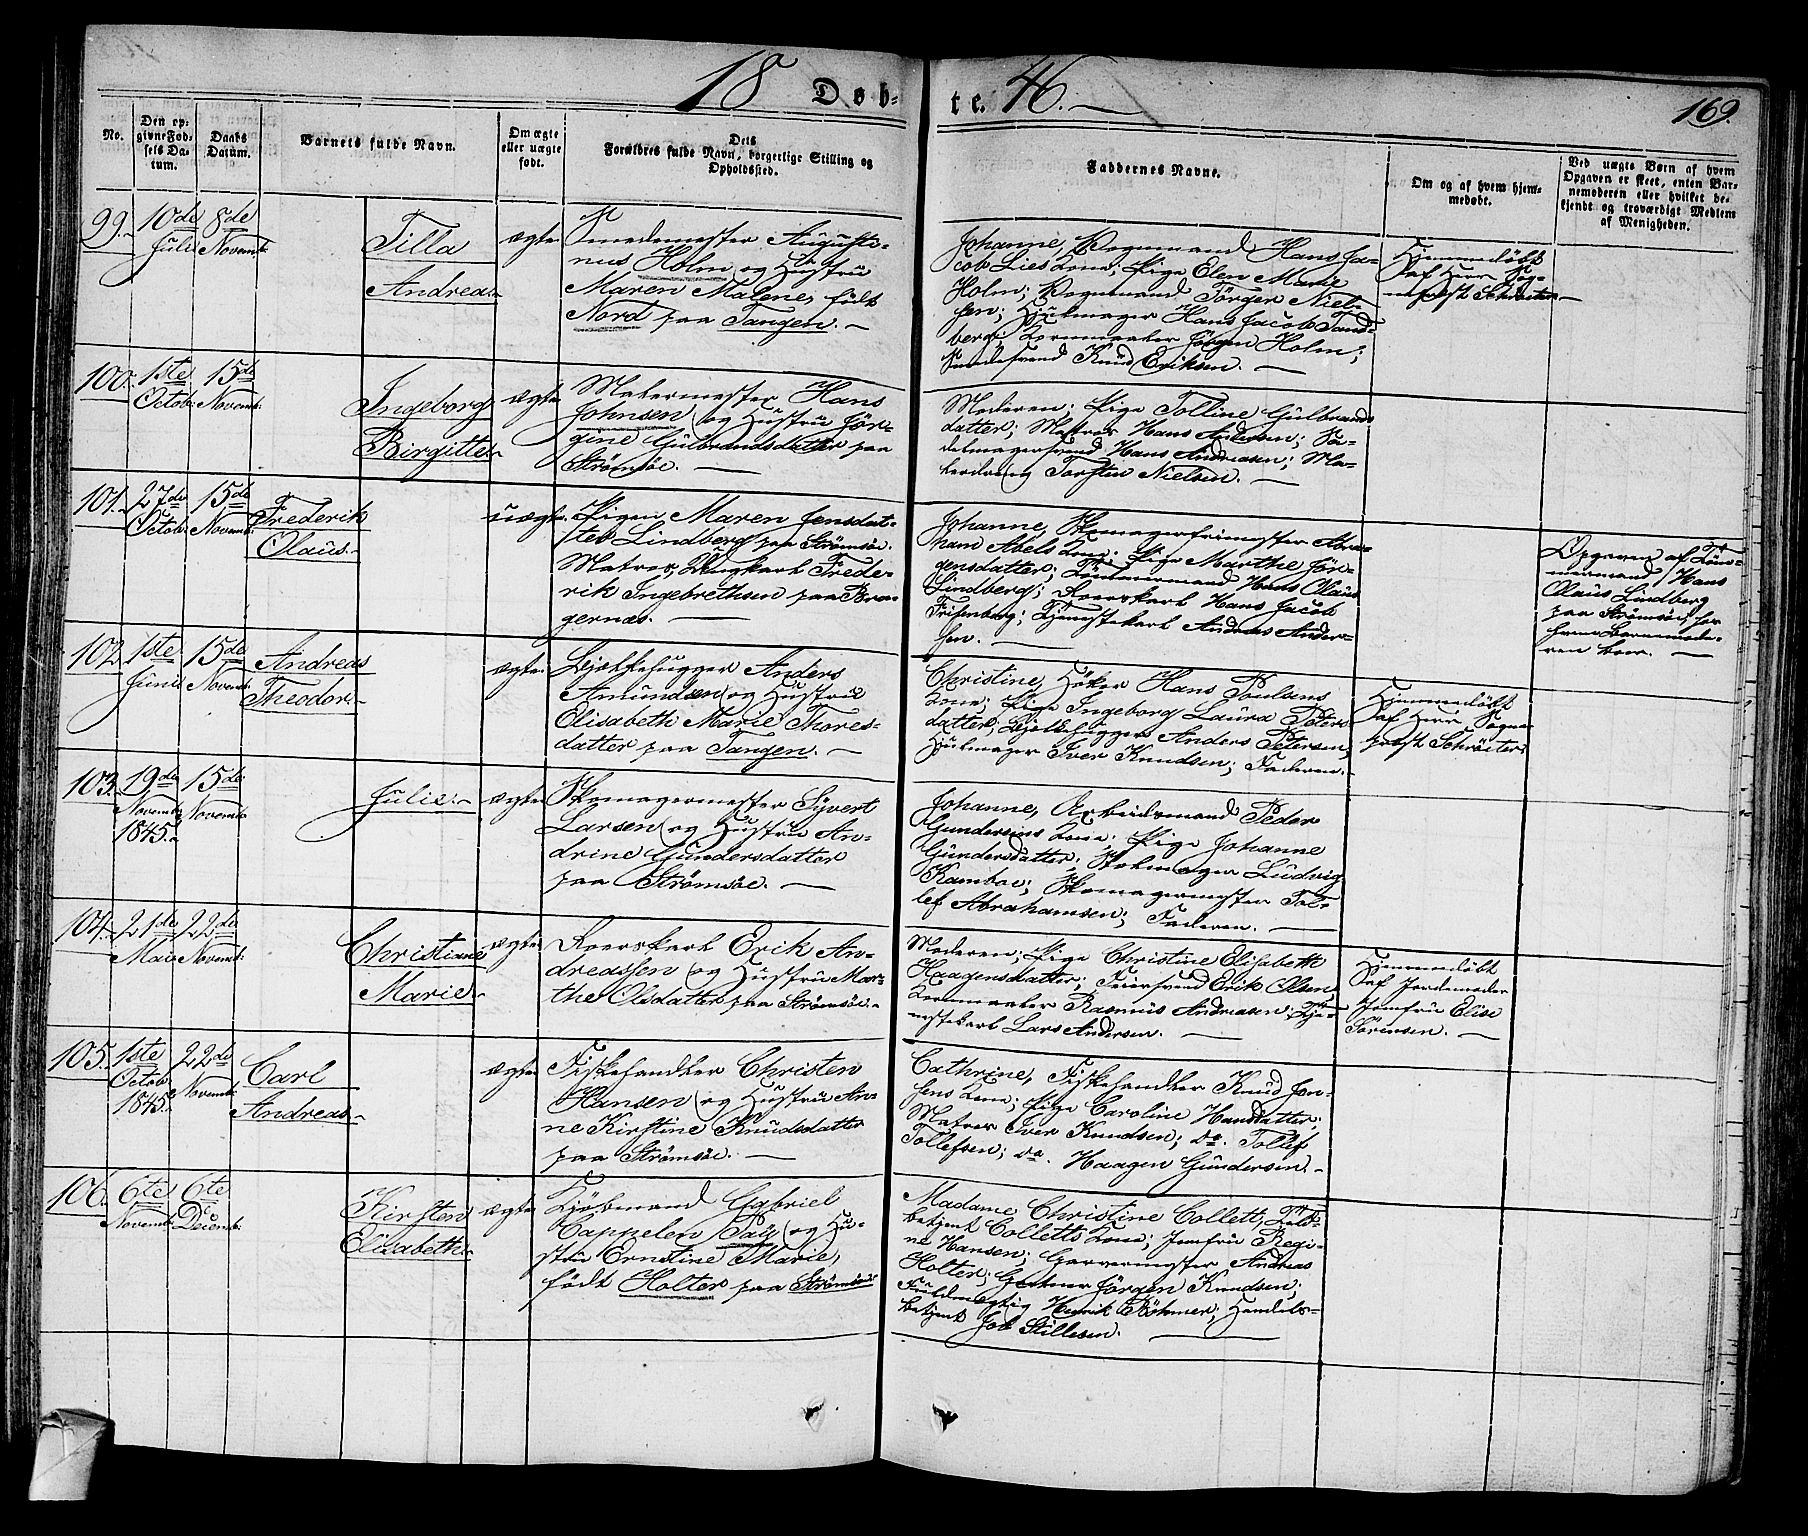 18 Døb-
te. 46.
169.
No.
Den op-
givne Fød-
sels Da-
tum.
Daabs
Datum.
Barnets fulde Navn.
Om ægte
eller uægte
født.
Dets
Forældres fulde Navn, borgerlige Stilling og
Opholdssted.
Faddernes Navne.
Om og af hvem hjem-
medøbt.
Ved uægte Børn af hvem
Opgaven er skeet, enten Bar-
nemoderen eller hvilket be-
kjendt og troværdigt Medlem
af Menigheden.
99.
10de
Julii
8de
Novemb:
Tilla
Andrea.
ægte
Smedemester Augusti-
nus Holm og Hustru
Maren Malene, født
Nord paa Tangen.
Johanne, Vognmand Hans Ja-
cob Lies Kone; Pige Elen Marie
Holm; Vognmand Törger Niel-
sen; Hjulmager Hans Jacob Tand-
berg; Kornmaaler Jörgen Holm;
Smedesvend Knud Eriksen.
Hjemmedöbt
af Herr Sog-
nepræst Schröeter
100.
1ste
Octob:
15de
Novemb:
Ingeborg
Birgitte
ægte
Malermester Hans
Johnsen og Hustru Jör-
gine Gulbrandsdatter paa
Strömsöe.
Moderen; Pige Tolline Gulbrands-
datter; Matros Hans Andersen; Sa-
delmagersvend Hans Andreasen; Ma-
lerdreng Torsten Nielsen.
101.
27de
Octob:
15de
Novemb:
Frederik
Olaus.
uægte.
Pigen Maren Jensdat-
ter Lindberg paa Strömsöe.
Matros, Ungkarl Frede-
rik Ingebrethsen paa Bra-
gernæs.
Johanne, Skomagerfrimester Abra-
ham Abels Kone; Pige Marthe Jör-
gensdatter; Tömmermand Hans Olaus
Lindberg; Roerskarl Hans Jacob
Frisenberg; Tjenestekarl Andreas Ander-
sen.
Opgaven af Töm-
mermand Hans
Olaus Lindberg
paa Strömsöe,
hvem Barnemode-
ren
102
1ste
Junii
15de
Novemb:
Andreas
Theodor.
ægte.
Anders
Amundsen og Hustru
Elisabeth Marie Thores-
datter paa Tangen.
Christine, Höker Hans Poulsens
Kone; Pige Ingeborg Laura Peters-
datter; Anders Petersen;
Hjulmager Iver Knudsen; Faderen.
Hjemmedöbt
af Herr Sogne-
præst Schröeter
103.
19de
Novemb:
1845.
15de
Novemb:
Julie.
ægte
Skomagermester Syvert
Larsen og Hustru An-
drine Gundersdatter
paa Strömsöe.
Johanne, Arbeidsmand Peder
Gundersens Kone; Pige Johanne
Gundersdatter; Skomager Ludvig
Kamboe; Skomagermester Tol-
lef Abrahamsen; Faderen.
104.
21de
Mai
22de
Novemb:
Christiane
Marie.
ægte
Roerskarl Erik An-
dreassen og Hustru Mar-
the Olsdatter paa Strömsöe.
Moderen; Pige Christine Elisabeth
Haagensdatter; Feiersvend Erik Olsen;
Kornmaaler Rasmus Andreasen; Tje-
nestekarl Lars Andersen.
Hjemmedöbt
af Jordemoder
Jomfru Elise
Sörensen.
105.
1ste
Octob:
1845.
22de
Novemb:
Carl
Andreas.
ægte.
Fiskehandler Christen
Hansen og Hustru An-
ne Kirstine Knudsdatter
paa Strömsöe.
Cathrine, Fiskehandler Knud Jon-
sens Kone; Pige Caroline Hansdatter;
Matros Iver Knudsen; do. Tollef
Tollefsen; do. Haagen Gundersen.
106.
6te
Novemb:
6te
Decemb:
Kirsten
Elisabeth.
ægte.
Kjöbmand Gabriel
Cappelen og Hu-
stru Ernstine Marie,
födt Holter paa Strömsöe
Madame Christine Collett, Told-
betjent Colletts Kone; Jomfru Regi-
ne Hansen; Garvermester Andreas
Holter; Gartner Jörgen Knudsen;
Fuldmægtig Henrik Böhmer; Handels-
betjent Job Stillesen.